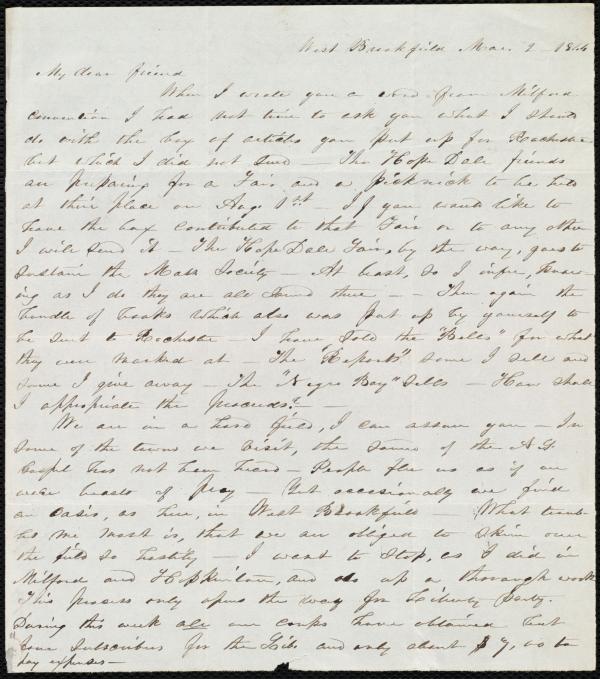 West Brookfield Mar. 2 1844
My dear friend
When I wrote you a word from Milford
convention I had not time to ask you what I should
do with the box of articles you put up for Rochester
but which I did not send — The Hope Dale friends
are preparing for a Fair and a picknick to be held
at their place on Aug 1st — If you would like to
have the box contributed to that Fair or to any other
I will send it — The Hope Dale Fair, by the way, goes to
sustain the Mass Society — At least, so I infer, know-
ing as I do they are all sound there — — Then again the
bundle of books which also was put up by yourself to
be sent to Rochester — I have sold the "Bells" for what
they were marked at — The "Reports" some I sell and
some I give away — The "Negro Boy" sells — How shall
I appropriate the proceeds? —
We are in a hard field, I can assure you — In
some of the towns we visit, the sound of the A. S.
Gospel has not been heard — People flee us as if we
were beasts of prey — Yet occasionally we find
an oasis, as here, in West Brookfield — What troub-
les me most is, that we are obliged to skim over
the field so hastily — I want to stop, as I did in
Milford and Hopkinton, and do up a thorough work
This process only opens the way for Liberty Party.
During this week all our corps have obtained but
four subscribers for the Lib. and only about $7, to
pay expenses —